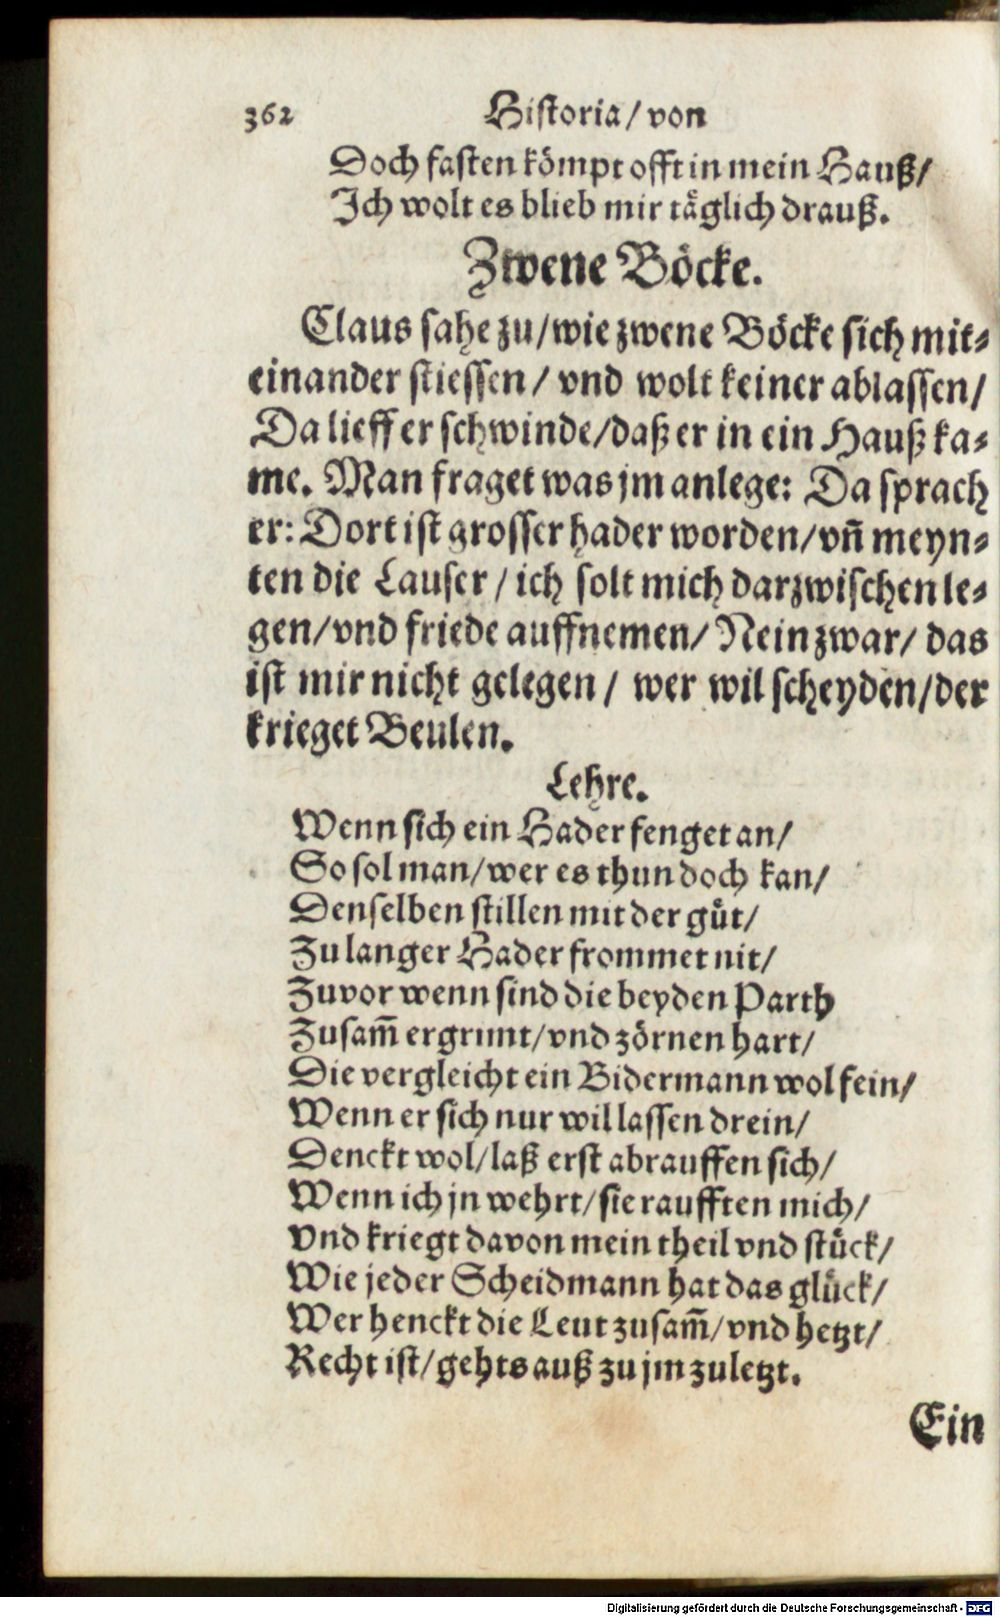 362 Historia/ von
Doch fasten kömpt offt in mein Hauß/
Ich wolt es blieb mir täglich drauß.
Zwene Böcke.
Claus sahe zu/wie zwene Böcke sich mit⸗
einander stiessen/ vnd wolt keiner ablassen/
Da lieff er schwinde/daß er in ein Hauß ka⸗
me. Man fraget was jm anlege: Da sprach
er: Dort ist grosser hader worden/vñ meyn⸗
ten die Lauser/ ich solt mich darzwischen le⸗
gen/vnd friede auffnemen/ Nein zwar/ das
ist mir nicht gelegen/ wer wil scheyden/der
krieget Beulen.
Lehre.
Wenn sich ein Hader fenget an/
So sol man/wer es thun doch kan/
Denselben stillen mit der güt/
Zu langer Hader frommet nit/
Zuvor wenn sind die beyden Parth
Zusam̃ ergrimt/vnd zörnen hart/
Die vergleicht ein Bidermann wol fein/
Wenn er sich nur wil lassen drein/
Denckt wol/laß erst abrauffen sich/
Wenn ich jn wehrt/sie raufften mich/
Vnd kriegt davon mein theil vnd stück/
Wie jeder Scheidmann hat das glück/
Wer henckt die Leut zusam̃/vnd hetzt/
Recht ist/gehts auß zu jm zuletzt.
Ein
Digitalisierung gefördert durch die Deutsche Forschungsgemeinschaft - DFG